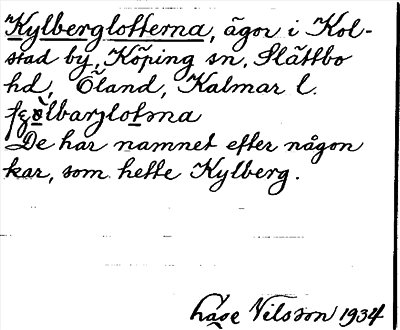 Kylberglotterna, ägor i Kol-
stad by, Köping sn, Slättbo
hd, Öland, Kalmar l.
De har namnet efter någon
kar, som hette Kylberg.
Nilsson 1934